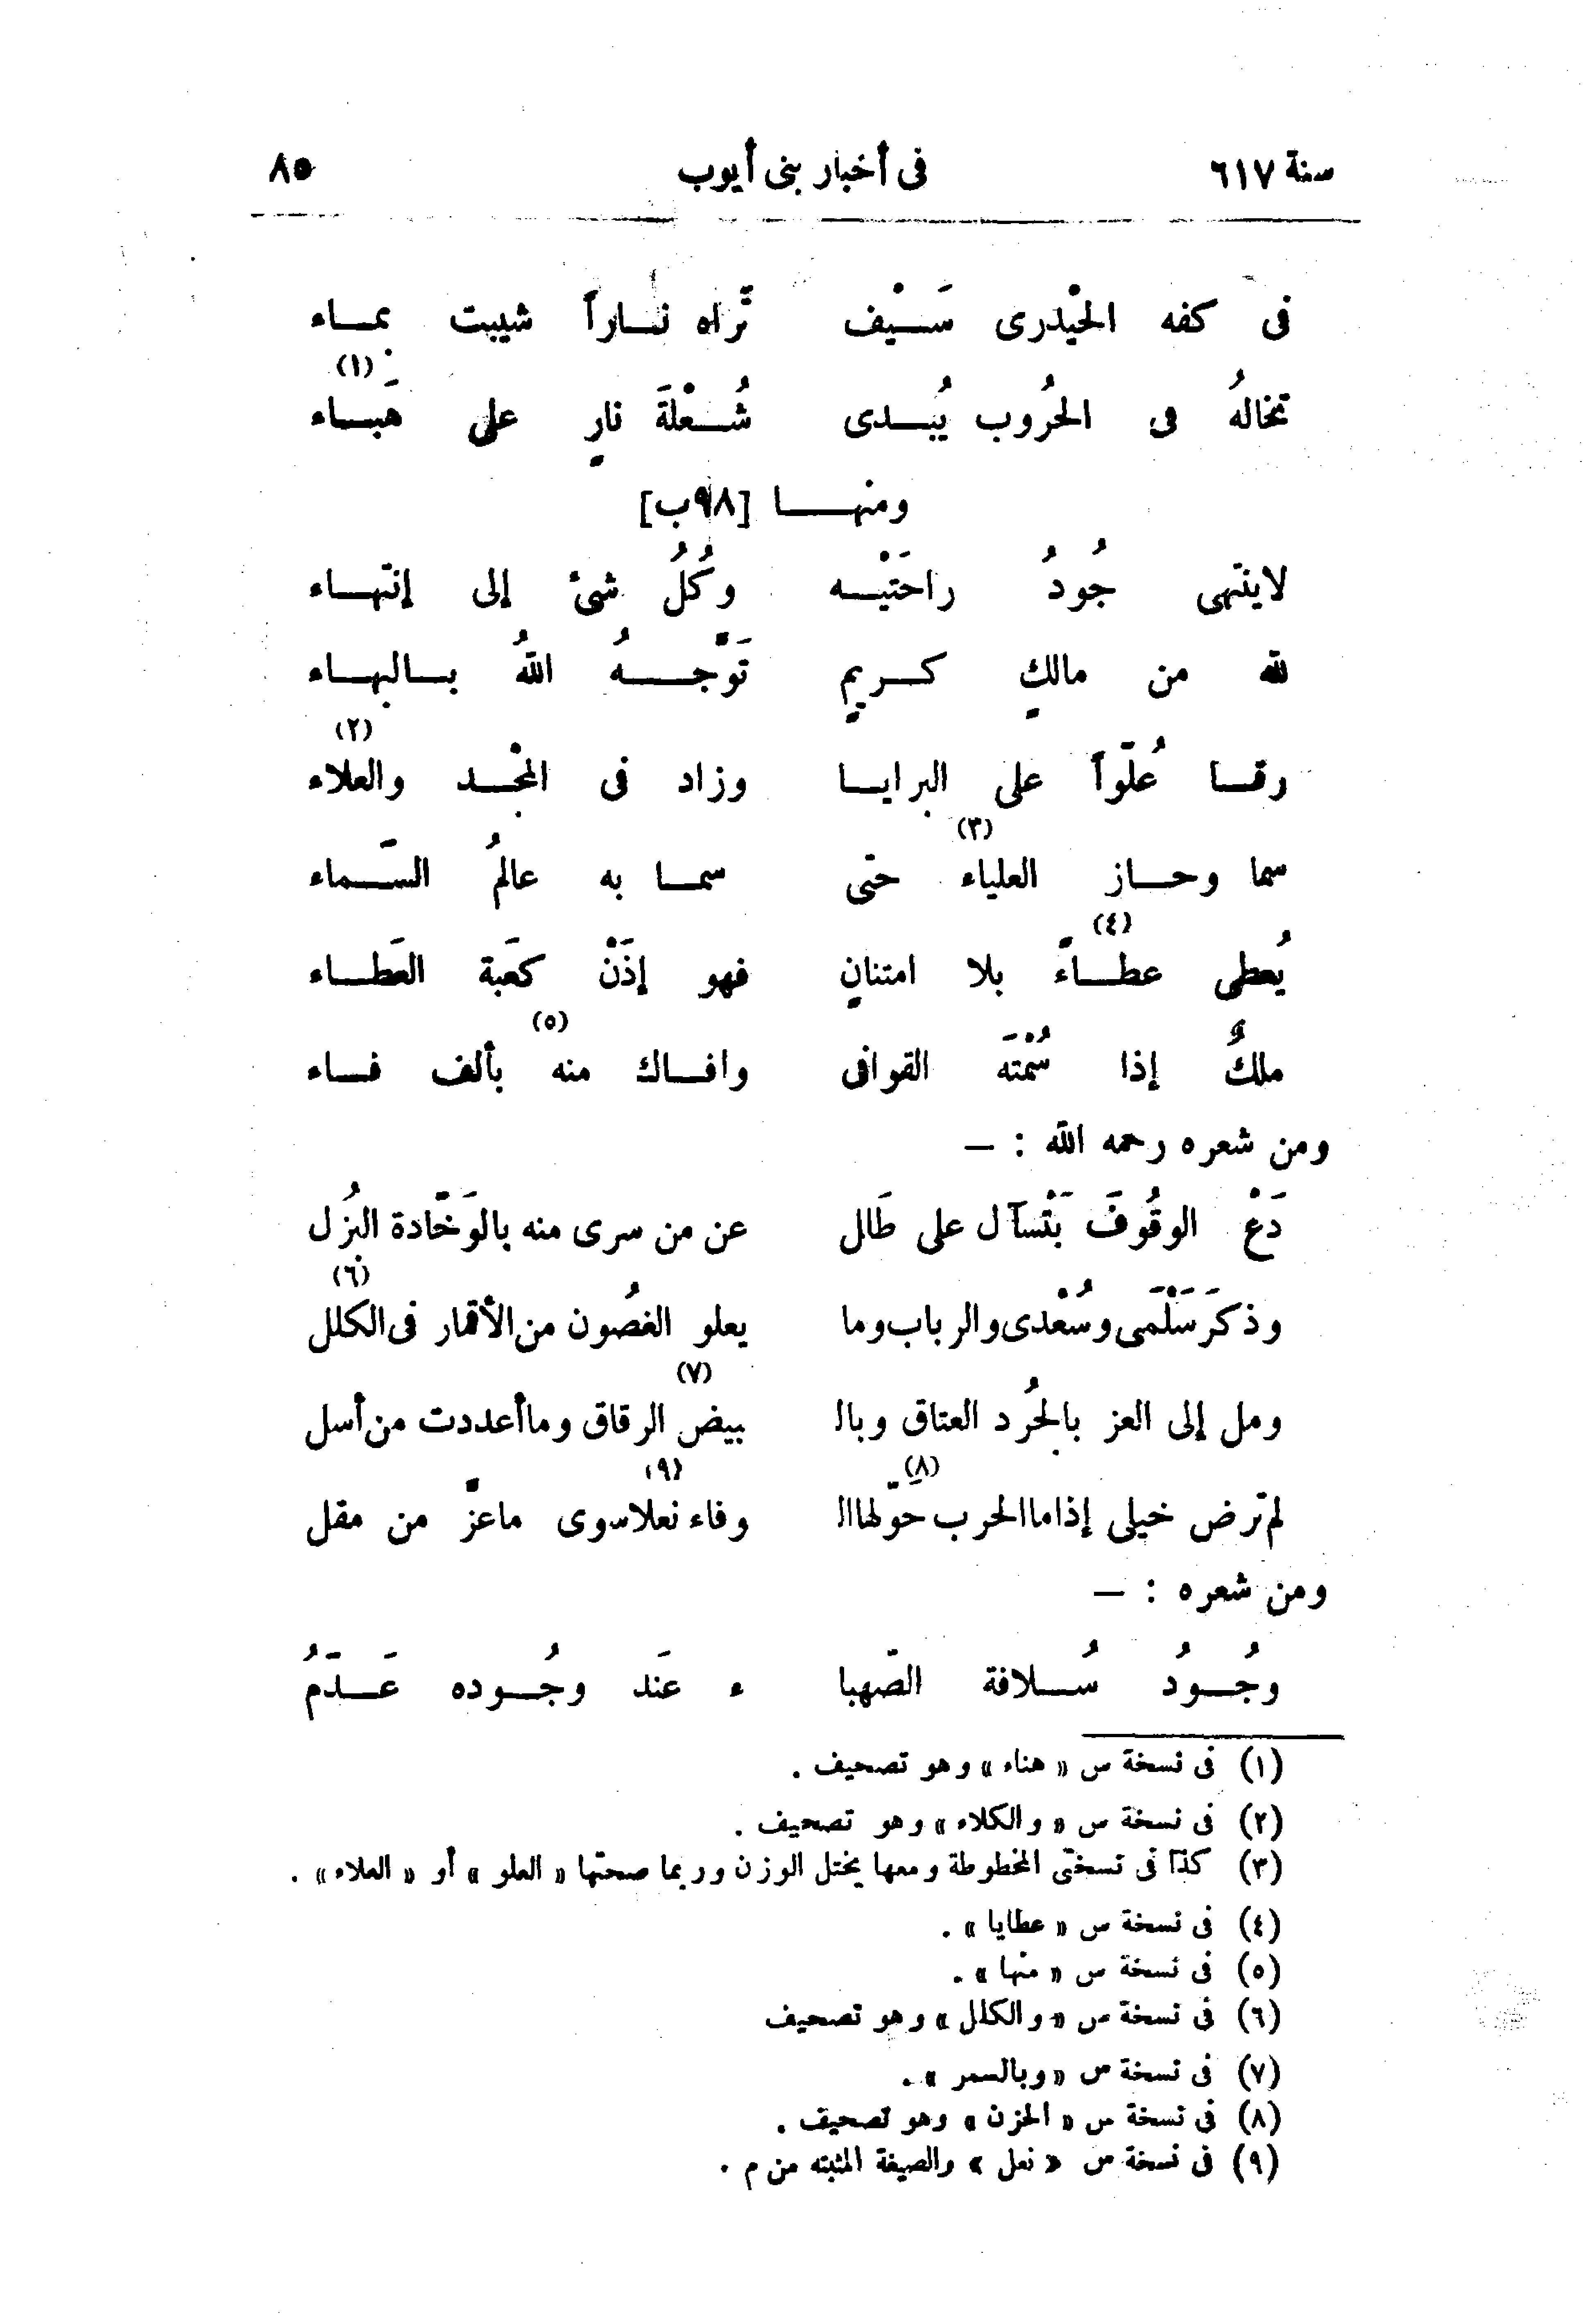 سنة ٦١٧ فى أخبار بنى أيوب ٨٥
فى كفه الحيْدرى سَـيْف تَّراه نـاراً شيبت بمـاء
تخالهُ فى الحرُوب يُبـدى شُـعْلَةَ نارٍ على هَبـاء (١)
ومنهـا [٩٨ب]
لاينتهى جُودُ راحَتيْـه وكُلُ شئ إلى إنتهـاء
لله من مالكٍ كـريمٍ تَوَّجـهُ اللهُ بـالبهـاء
رقـا عُلّواً على البرايـا وزاد فى المجْـد والعلاء (٢)
سما وحـاز العلياء (٣) حتى سمـا به عالمُ السَّـماء
يُعطى عطـاءً (٤) بلا امتنانٍ فهو إذَنْ كعَبة العَطـاء
ملكٌ إذا سُمْتَه القوافى وافـاك منه (٥) بألف فـاء
ومن شعره رحمه الله : —
دَعْ الوقُوفَ بَتْسآل على طَال عن من سرى منه بالوَخّادة البُزل
وذكرَ سَلْمَى وسُعْدَى والرباب وما يعلو الغصُون من الأقمار فى الكلل (٦)
ومل إلى العز بالجُرد العتاق وبال بيض (٧) الرقاق وما أعددت من أسل
لم ترض خيلى إذا ما الحرب (٨) حوّلها ال وفاء نعلا (٩) سوى ماعزّ من مقل
ومن شعره : —
وجُـودُ سُـلافة الصّهبا ء عَند وجُـوده عَـدَّمُ
(١) فى نسخة س « هناء » وهو تصحيف .
(٢) فى نسخة س « والكلاء » وهو تصحيف .
(٣) كذا فى نسختى المخطوطة ومعها يختل الوزن وربما صحتها « العلو » أو « العلاء » .
(٤) فى نسخة س « عطايا » .
(٥) فى نسخة س « منها » .
(٦) فى نسخة س « والكلل » وهو تصحيف
(٧) فى نسخة س « وبالسمر » .
(٨) فى نسخة س « الحزن » وهو تصحيف .
(٩) فى نسخة س « نعل » والصيغة المثبته من م .